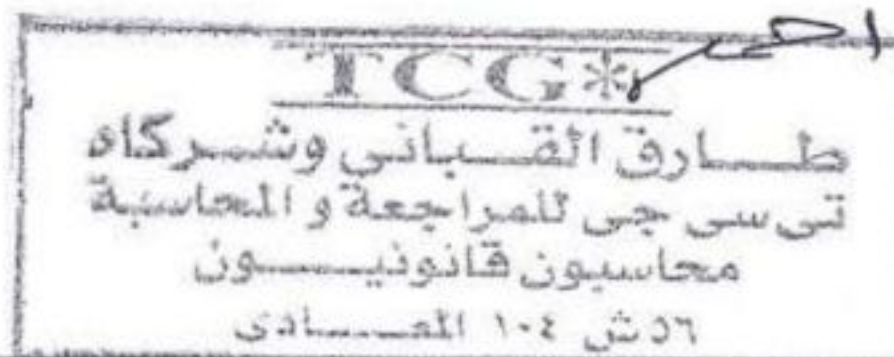 TCG*
طارق القباني وشركاه
تى سى جى للمراجعة و المحاسبة
محاسبون قانونيون
ش ١٠٤ المعادى